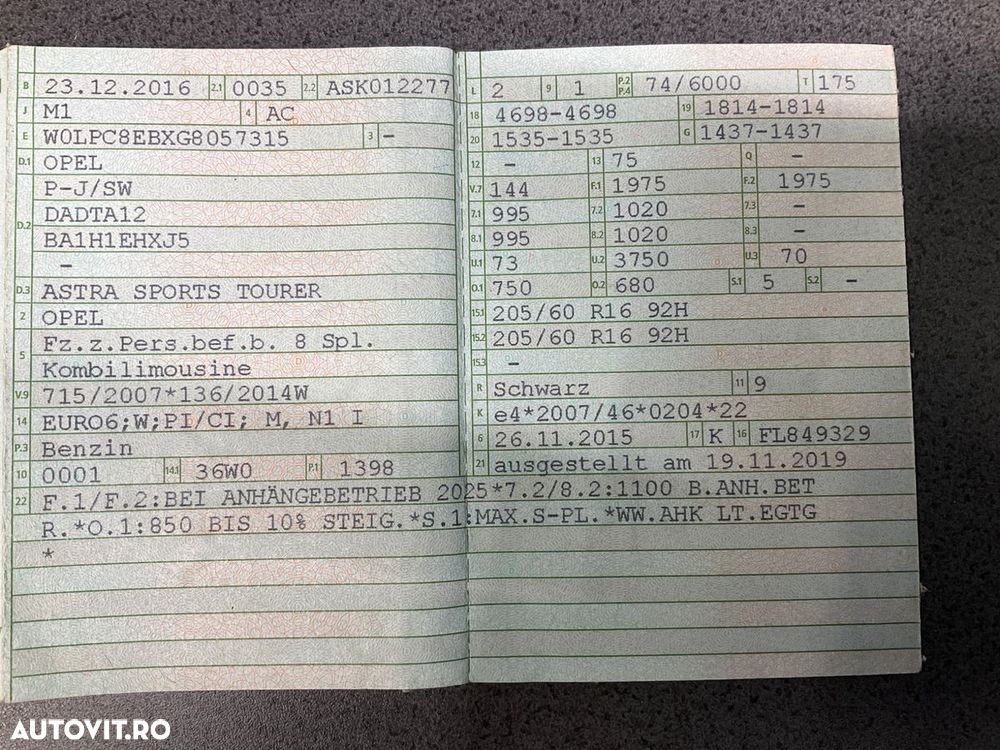 B 23.12.2016 2.1 0035 2.2 ASK012277
J M1 4 AC
E W0LPC8EBXG8057315 3 -
D.1 OPEL
D.2 P-J/SW
DADTA12
BA1H1EHXJ5
-
D.3 ASTRA SPORTS TOURER
2 OPEL
5 Fz.z.Pers.bef.b. 8 Spl.
Kombilimousine
V.9 715/2007*136/2014W
14 EURO6;W;PI/CI; M, N1 I
P.3 Benzin
10 0001 14.1 36W0 P.1 1398
L 2 9 1 P.2 P.4 74/6000 T 175
18 4698-4698 19 1814-1814
20 1535-1535 G 1437-1437
12 - 13 75 Q -
V.7 144 F.1 1975 F.2 1975
7.1 995 7.2 1020 7.3 -
8.1 995 8.2 1020 8.3 -
U.1 73 U.2 3750 U.3 70
O.1 750 O.2 680 S.1 5 S.2 -
15.1 205/60 R16 92H
15.2 205/60 R16 92H
15.3 -
R Schwarz 11 9
K e4*2007/46*0204*22
6 26.11.2015 17 K 16 FL849329
21 ausgestellt am 19.11.2019
22 F.1/F.2:BEI ANHÄNGEBETRIEB 2025*7.2/8.2:1100 B.ANH.BET
R.*O.1:850 BIS 10% STEIG.*S.1:MAX.S-PL.*WW.AHK LT.EGTG
*
AUTOVIT.RO